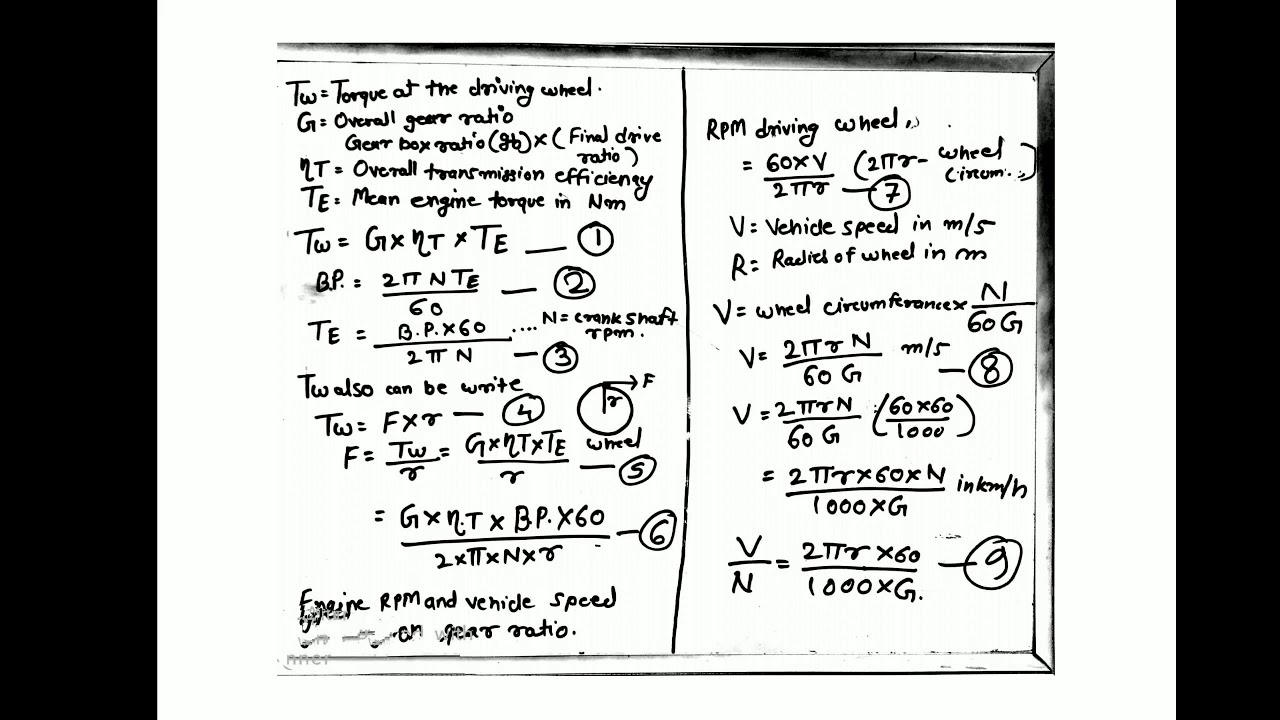 Tw = Torque at the driving wheel.
G = Overall gear ratio
Gear box ratio (gb) × (Final drive ratio)
ηT = Overall transmission efficiency
TE = Mean engine torque in Nm
Tw = G × ηT × TE — ①
B.P. = 2πNTE / 60 — ②
TE = B.P. × 60 / 2πN .... N = crank shaft rpm. — ③
Tw also can be write
Tw = F × r — ④
F
r
wheel
F = Tw / r = G × ηT × TE / r — ⑤
= G × η.T × B.P. × 60 / 2 × π × N × r — ⑥
Engine RPM and vehicle speed
on gear ratio.
RPM driving wheel
= 60 × V / 2πr (2πr - wheel circum.) — ⑦
V = Vehicle speed in m/s
R = Radios of wheel in m
V = wheel circumferance × N / 60 G
V = 2πrN / 60 G m/s — ⑧
V = 2πrN / 60 G (60×60 / 1000)
= 2πr × 60 × N / 1000 × G in km/h
V / N = 2πr × 60 / 1000 × G. — ⑨